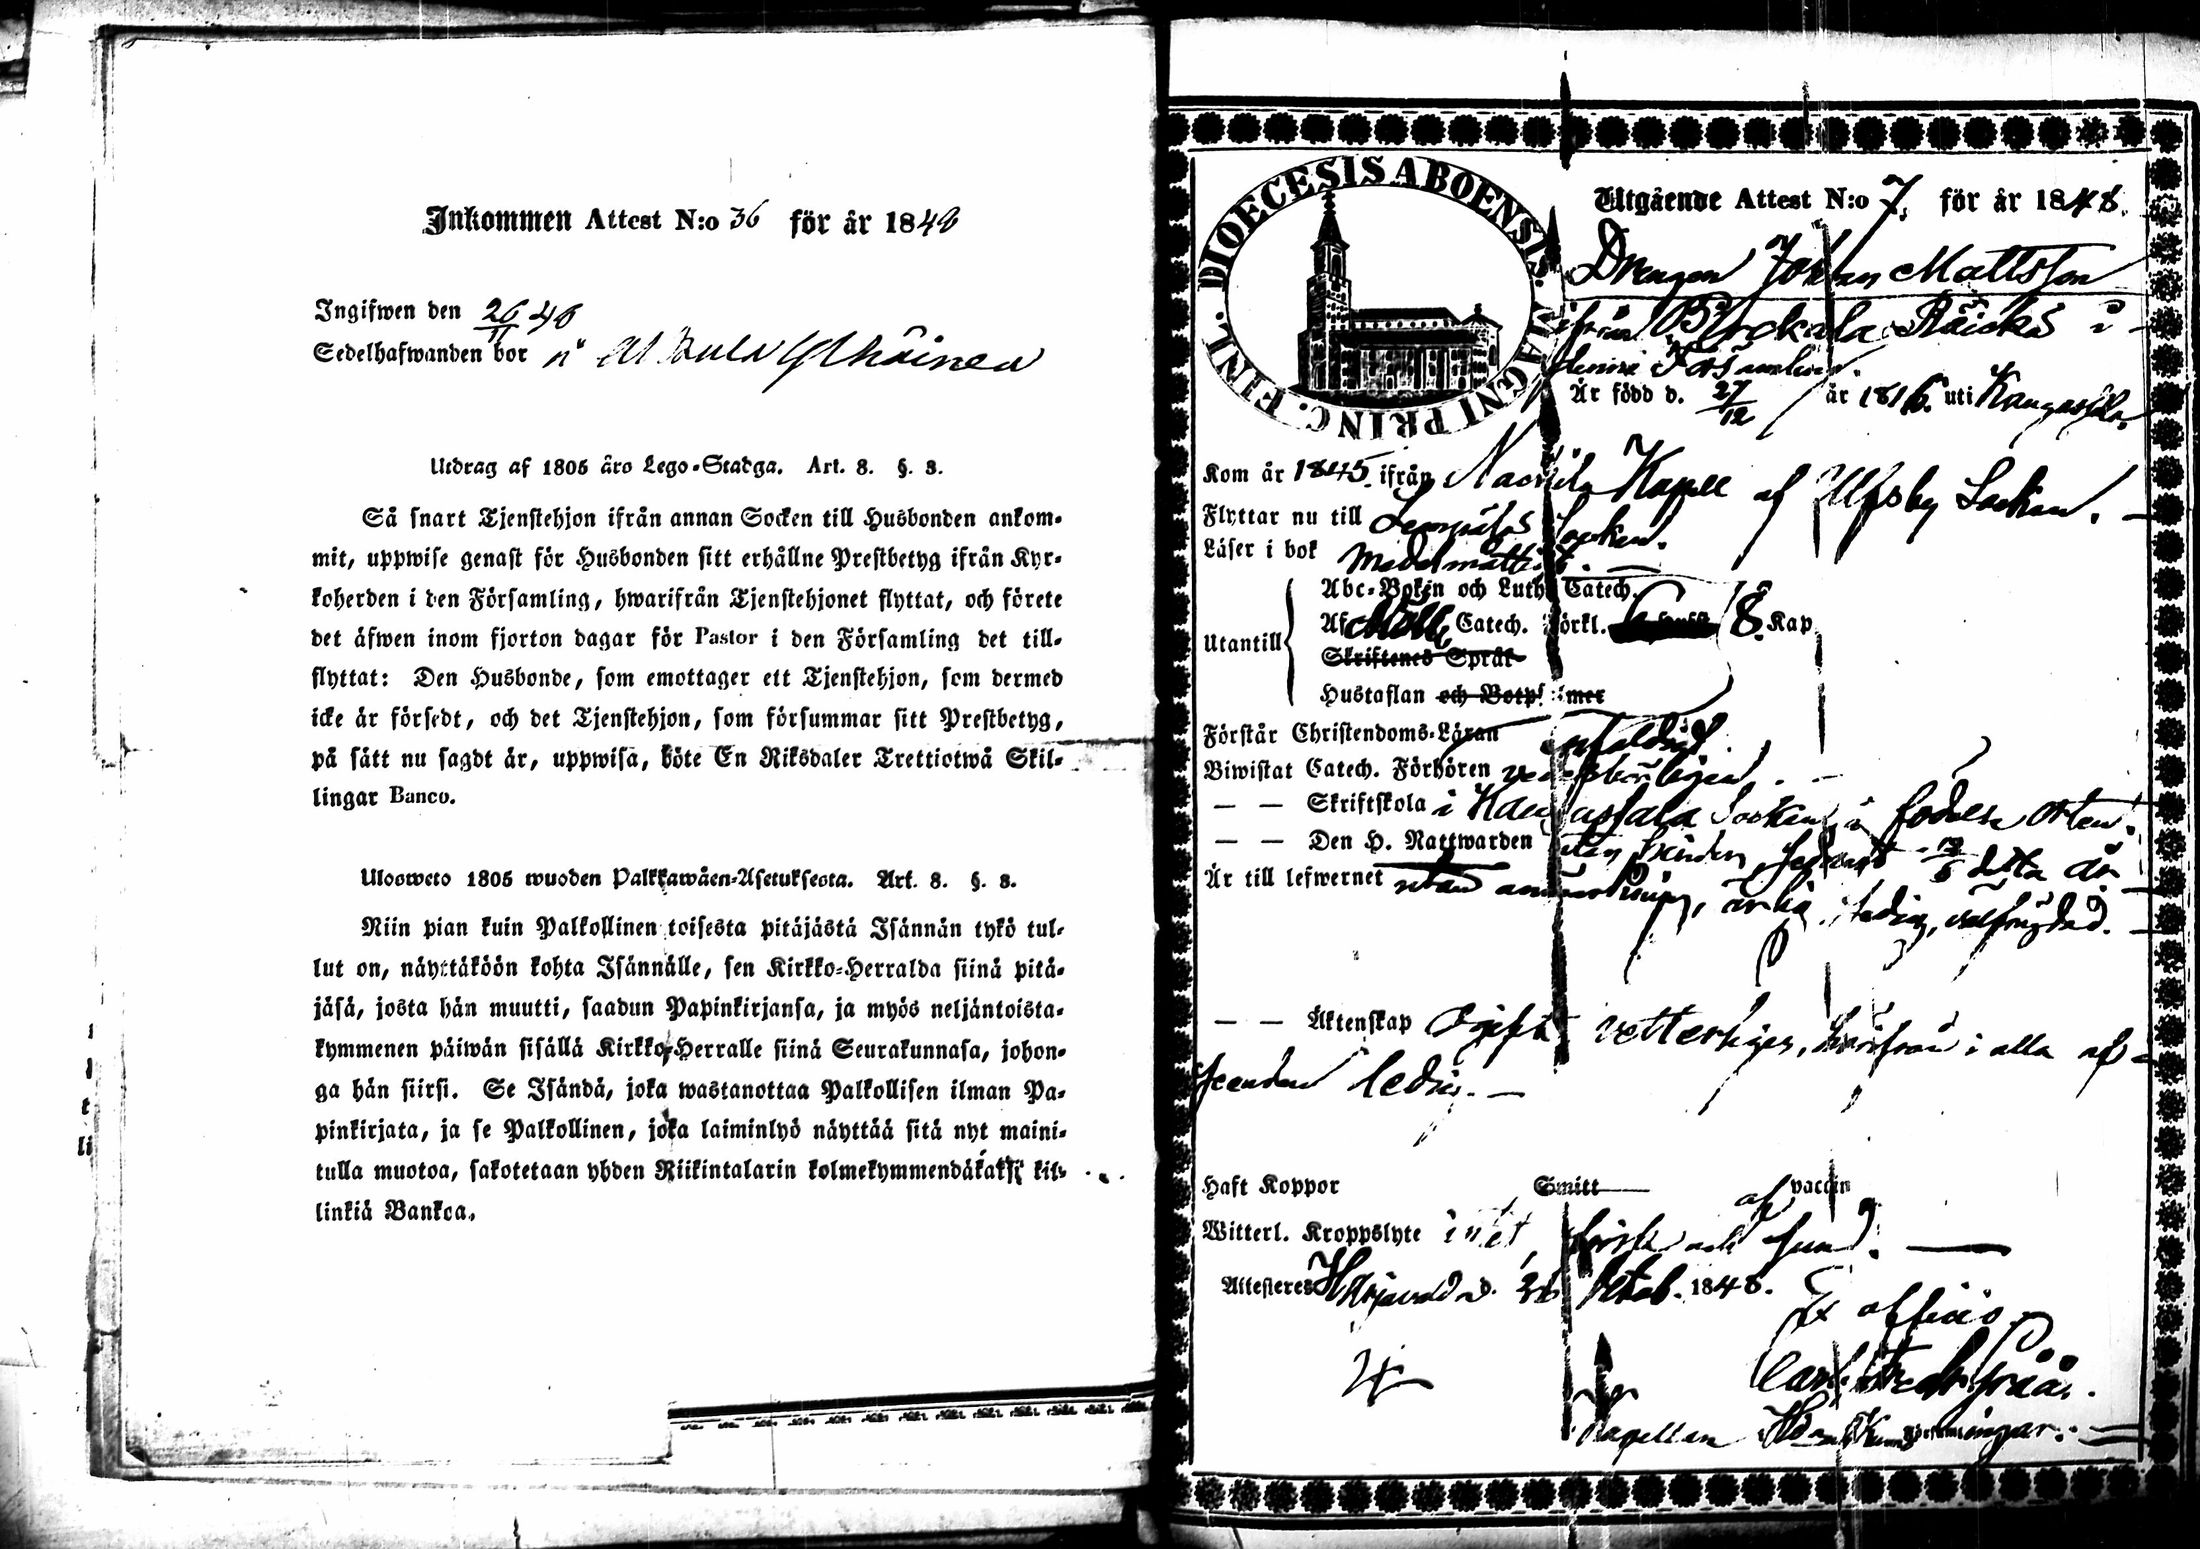 Inkommen Attest N:o 36 för år 1848
Ingifwen den 26/11 48
Sedelhafwanden bor
Utdrag af 1805 års Lego-Stadga. Art. 8. §. 3.
Så snart Tjenstehjon ifrån annan Socken till Husbonden ankom-
mit, uppwise genast för Husbonden sitt erhållne Prestbetyg ifrån Kyr-
koherden i den Församling, hwarifrån Tjenstehjonet flyttat, och förete
det äfwen inom fjorton dagar för Pastor i den Församling det till-
flyttat: Den Husbonde, som emottager ett Tjenstehjon, som dermed
icke är försedt, och det Tjenstehjon, som försummar sitt Prestbetyg,
på sätt nu sagdt är, uppwisa, böte En Riksdaler Trettiotwå Skil-
lingar Banco.
Ulosweto 1805 wuoden Palkkawäen-Asetuksesta. Art. 8. §. 3.
Niin pian kuin Palkollinen toisesta pitäjästä Isännän tykö tul-
lut on, näyttäköön kohta Isännälle, sen Kirkko-Herralda siinä pitä-
jäsä, josta hän muutti, saadun Papinkirjansa, ja myös neljäntoista-
kymmenen päiwän sisällä Kirkko-Herralle siinä Seurakunnasa, johon-
ga hän siirsi. Se Isändä, joka wastanottaa Palkollisen ilman Pa-
pinkirjata, ja se Palkollinen, joka laiminlyö näyttää sitä nyt maini-
tulla muotoa, sakotetaan yhden Riikintalarin kolmekymmendäkaksi kil-
linkiä Bankoa.
DIOECESIS ABOENSIS. MAGNI PRINC. FINL.
Utgående Attest N:o 7. för år 1848.
Drengen Johan Mattsson
ifrån Pirckala Räickä i
denna Församling.
Är född d. 27/12 år 1816. uti Kangasala.
Kom år 1845. ifrån Kapell af Ulfsby Socken.
Flyttar nu till Lempälä Socken.
Läser i bok medelmåttigt.
Utantill
Abc-Boken och Luth. Catech.
Af Möll. Catech. Förkl. 8. Kap
Skriftenes Språk
Hustaflan och Botpsalmer
Förstår Christendoms-Läran enfaldigt.
Biwistat Catech. Förhören
— — Skriftskola i Kangasala Socken, födelse orten.
— — Den H. Nattwarden detta år
Är till lefwernet utan anmärkning, ärlig, stadig, välfrägdad.
— — Äktenskap Ogift, härifrån i alla af-
seenden ledig. —
Haft Koppor Smitt af vaccin
Witterl. Kroppslyte intet, frisk och sund. —
Attesteres Harjavalda d. 26 Octob. 1848.
Ex officio
Carl Fredr.
Capellan